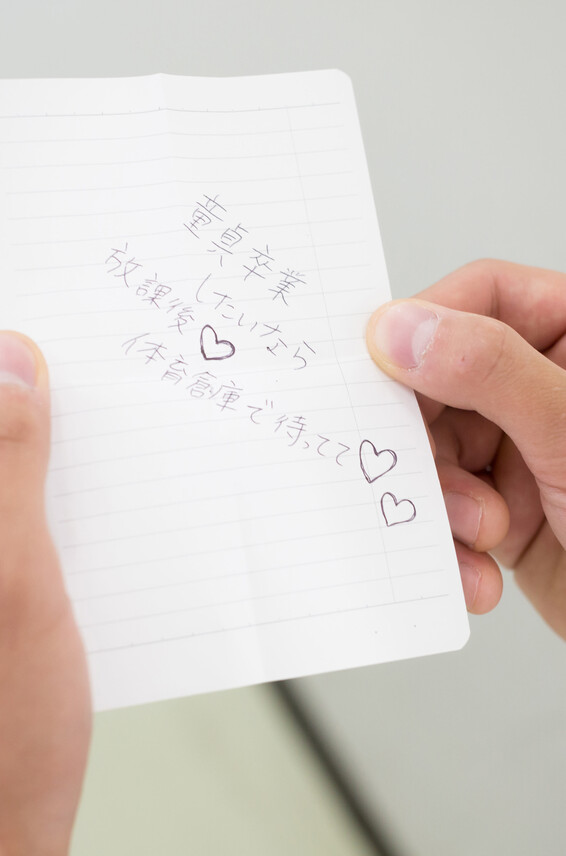 童貞卒業
したいなら
放課後♡
体育倉庫で待ってて♡
♡